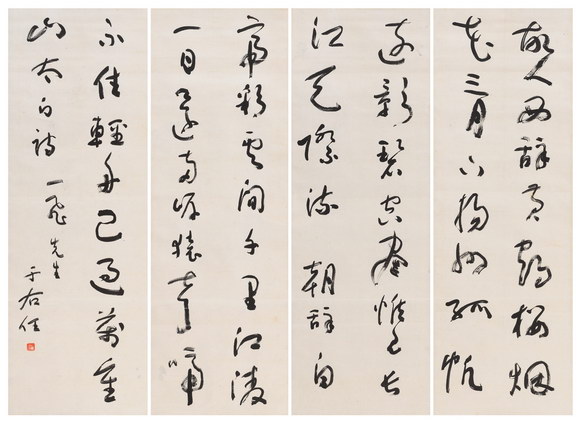 故人西辭黃鶴樓烟
花三月下揚州孤帆
遠影碧空盡惟見長
江天際流 朝辭白
帝彩雲間千里江陵
一日還兩岸猿聲啼
不住輕舟已過萬重
山太白詩 一飛先生
于右任